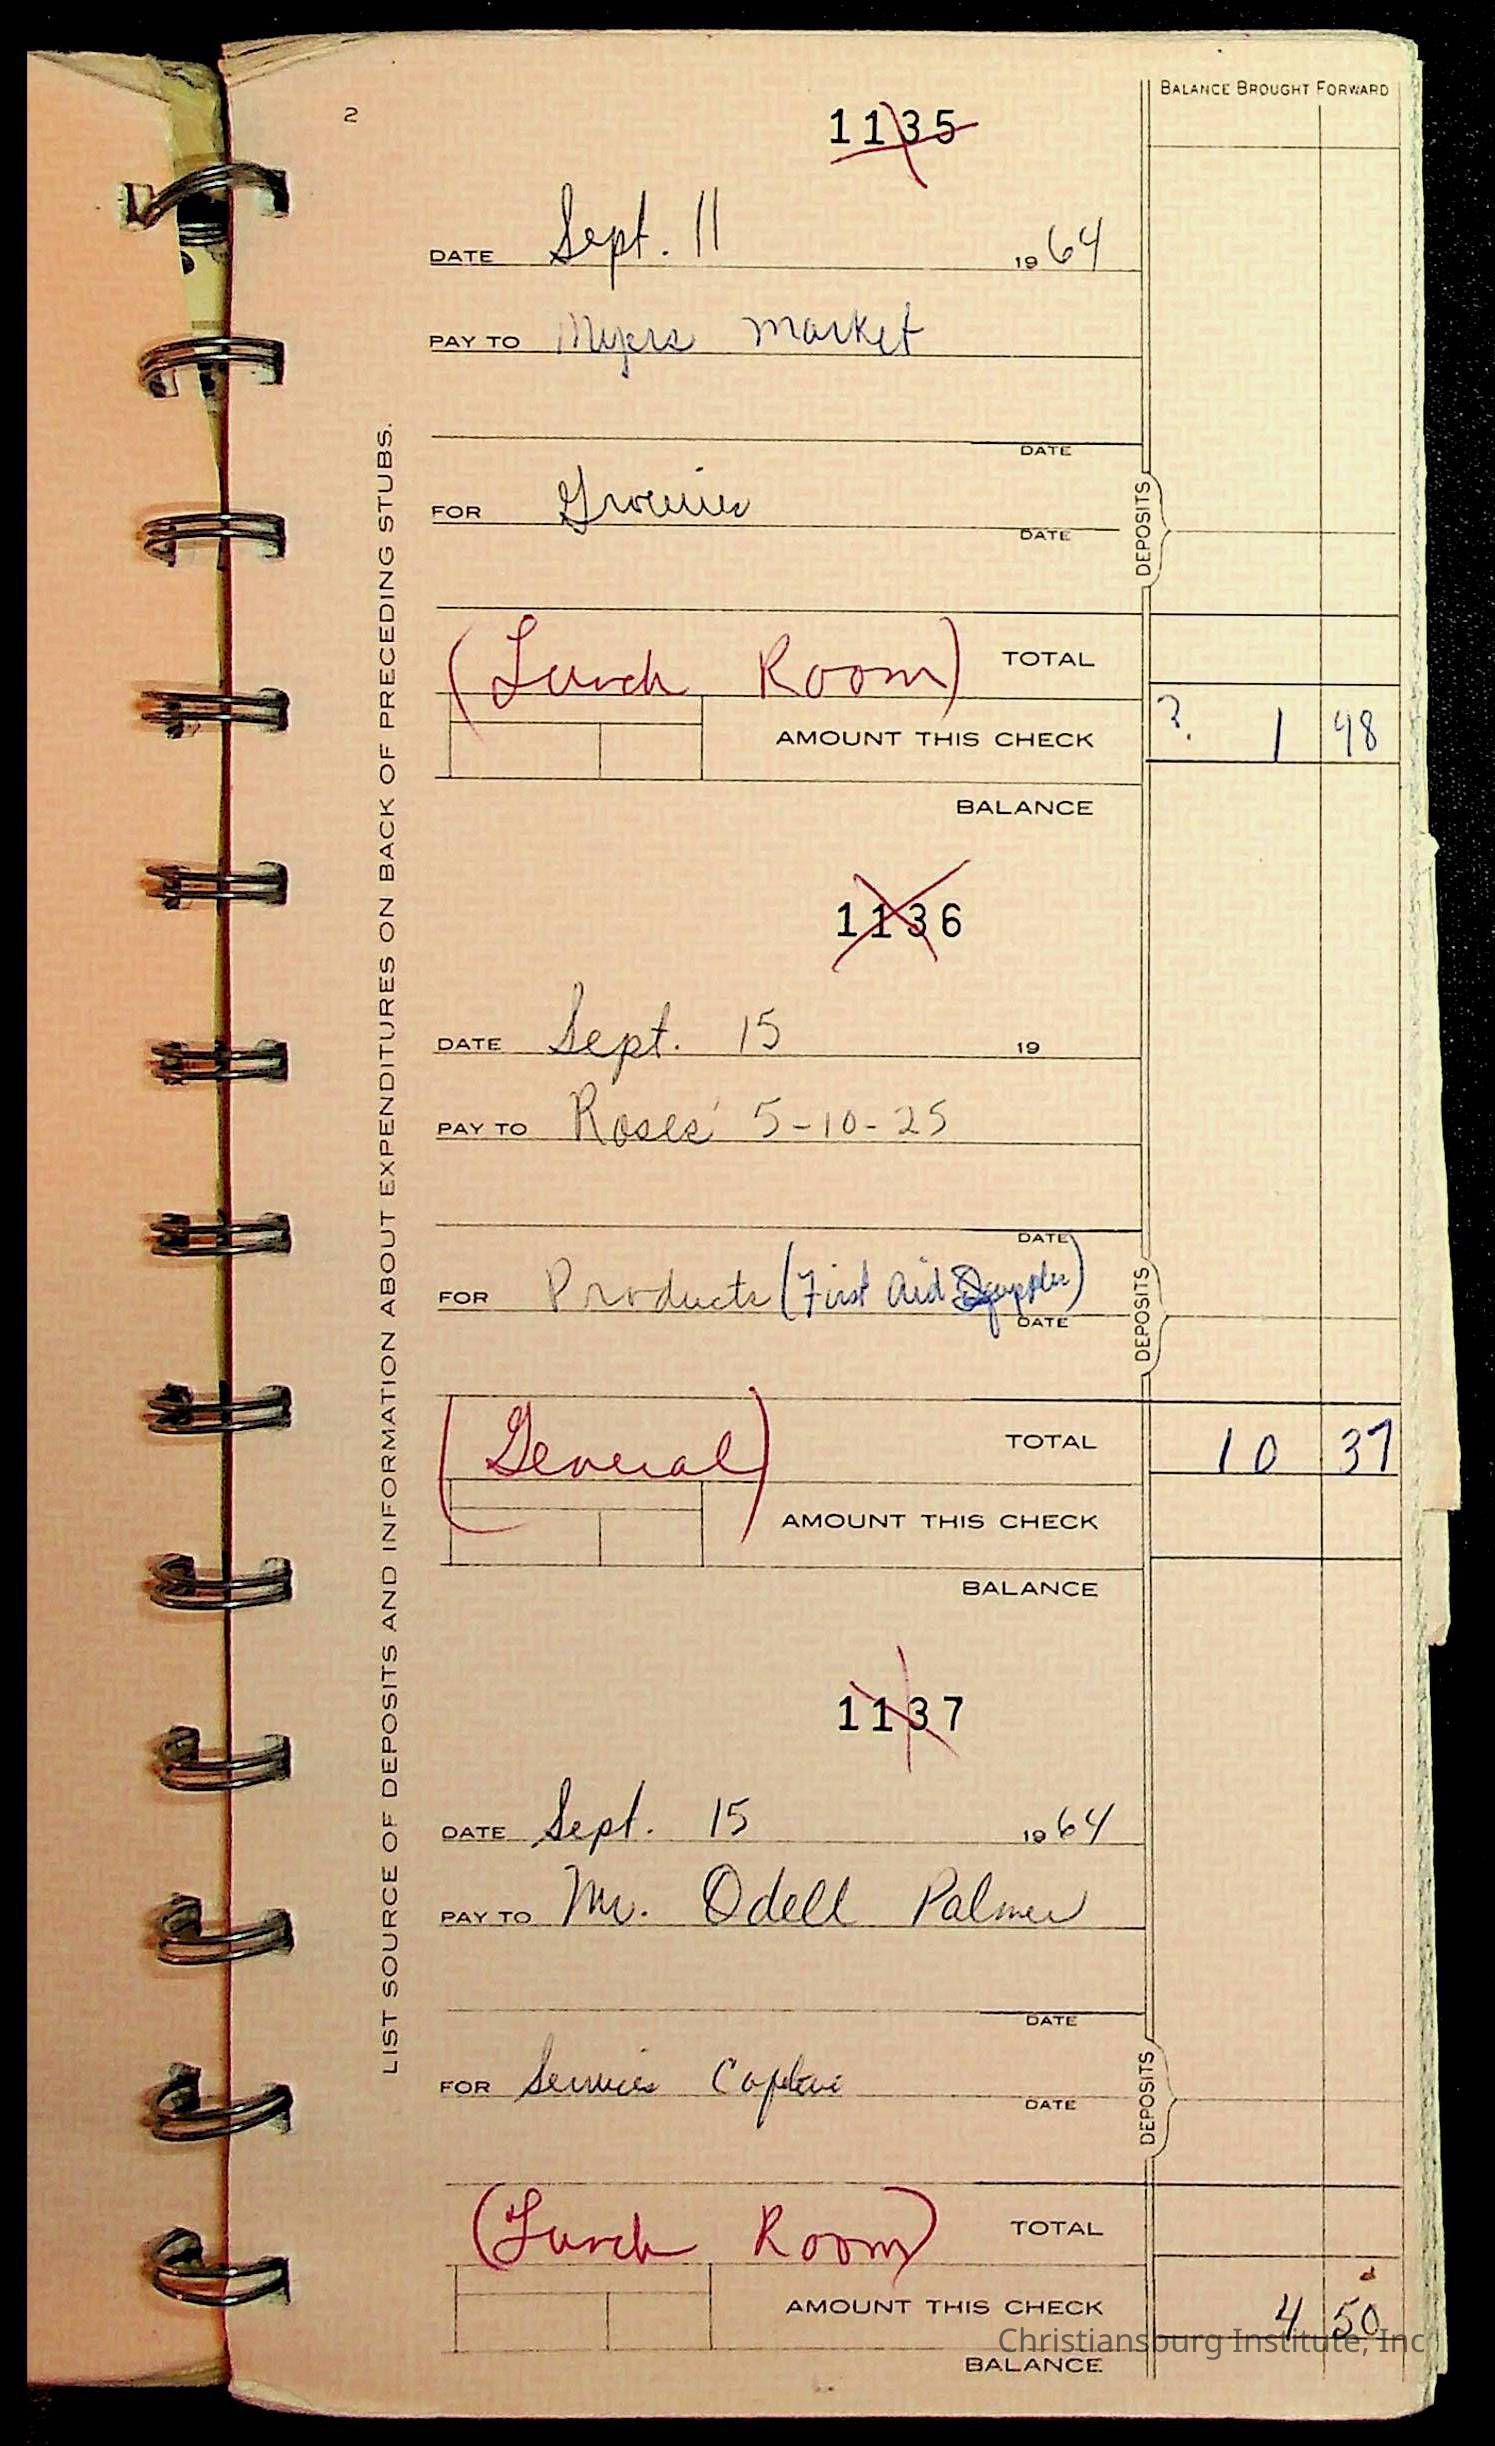 2
BALANCE BROUGHT FORWARD
1135
DATE Sept. 11 19 64
PAY TO Myers Market
DATE
FOR Groceries
DATE
DEPOSITS
(Lunch Room) TOTAL
AMOUNT THIS CHECK ? 1 98
BALANCE
1136
DATE Sept. 15 19
PAY TO Roses' 5-10-25
DATE
FOR Products (First Aid Supplies)
DATE
DEPOSITS
(General) TOTAL 10 37
AMOUNT THIS CHECK
BALANCE
1137
DATE Sept. 15 19 64
PAY TO Mr. Odell Palmer
DATE
FOR Services
DATE
DEPOSITS
(Lunch Room) TOTAL
AMOUNT THIS CHECK 4 50
BALANCE
LIST SOURCE OF DEPOSITS AND INFORMATION ABOUT EXPENDITURES ON BACK OF PRECEDING STUBS.
Christiansburg Institute, Inc